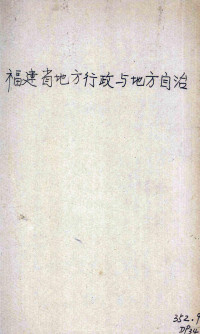 福建省地方行政与地方自治
352.9
DP34